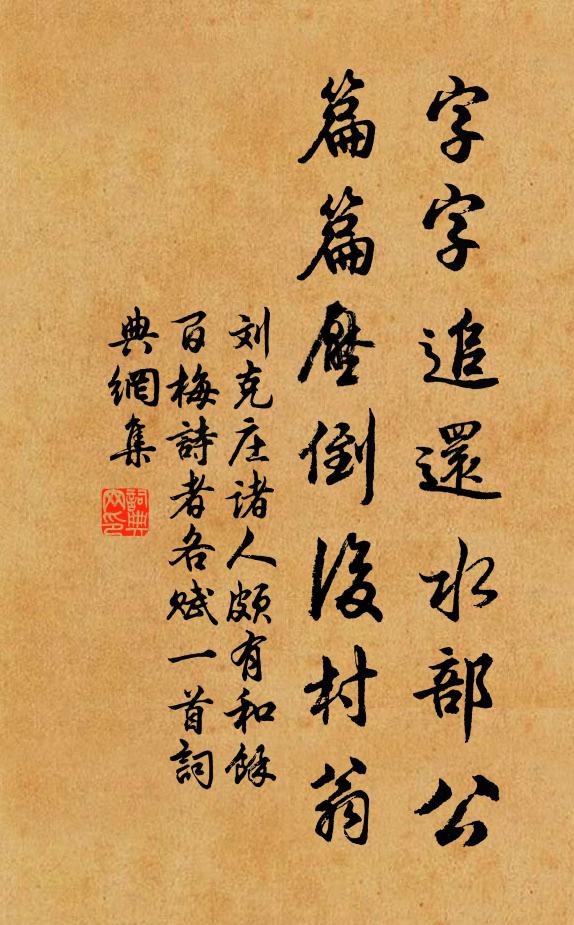 字字追還水部公
篇篇壓倒後村翁
刘克庄诸人頗有和餘
百梅詩者各赋一首詞
典網集
詞典
网印